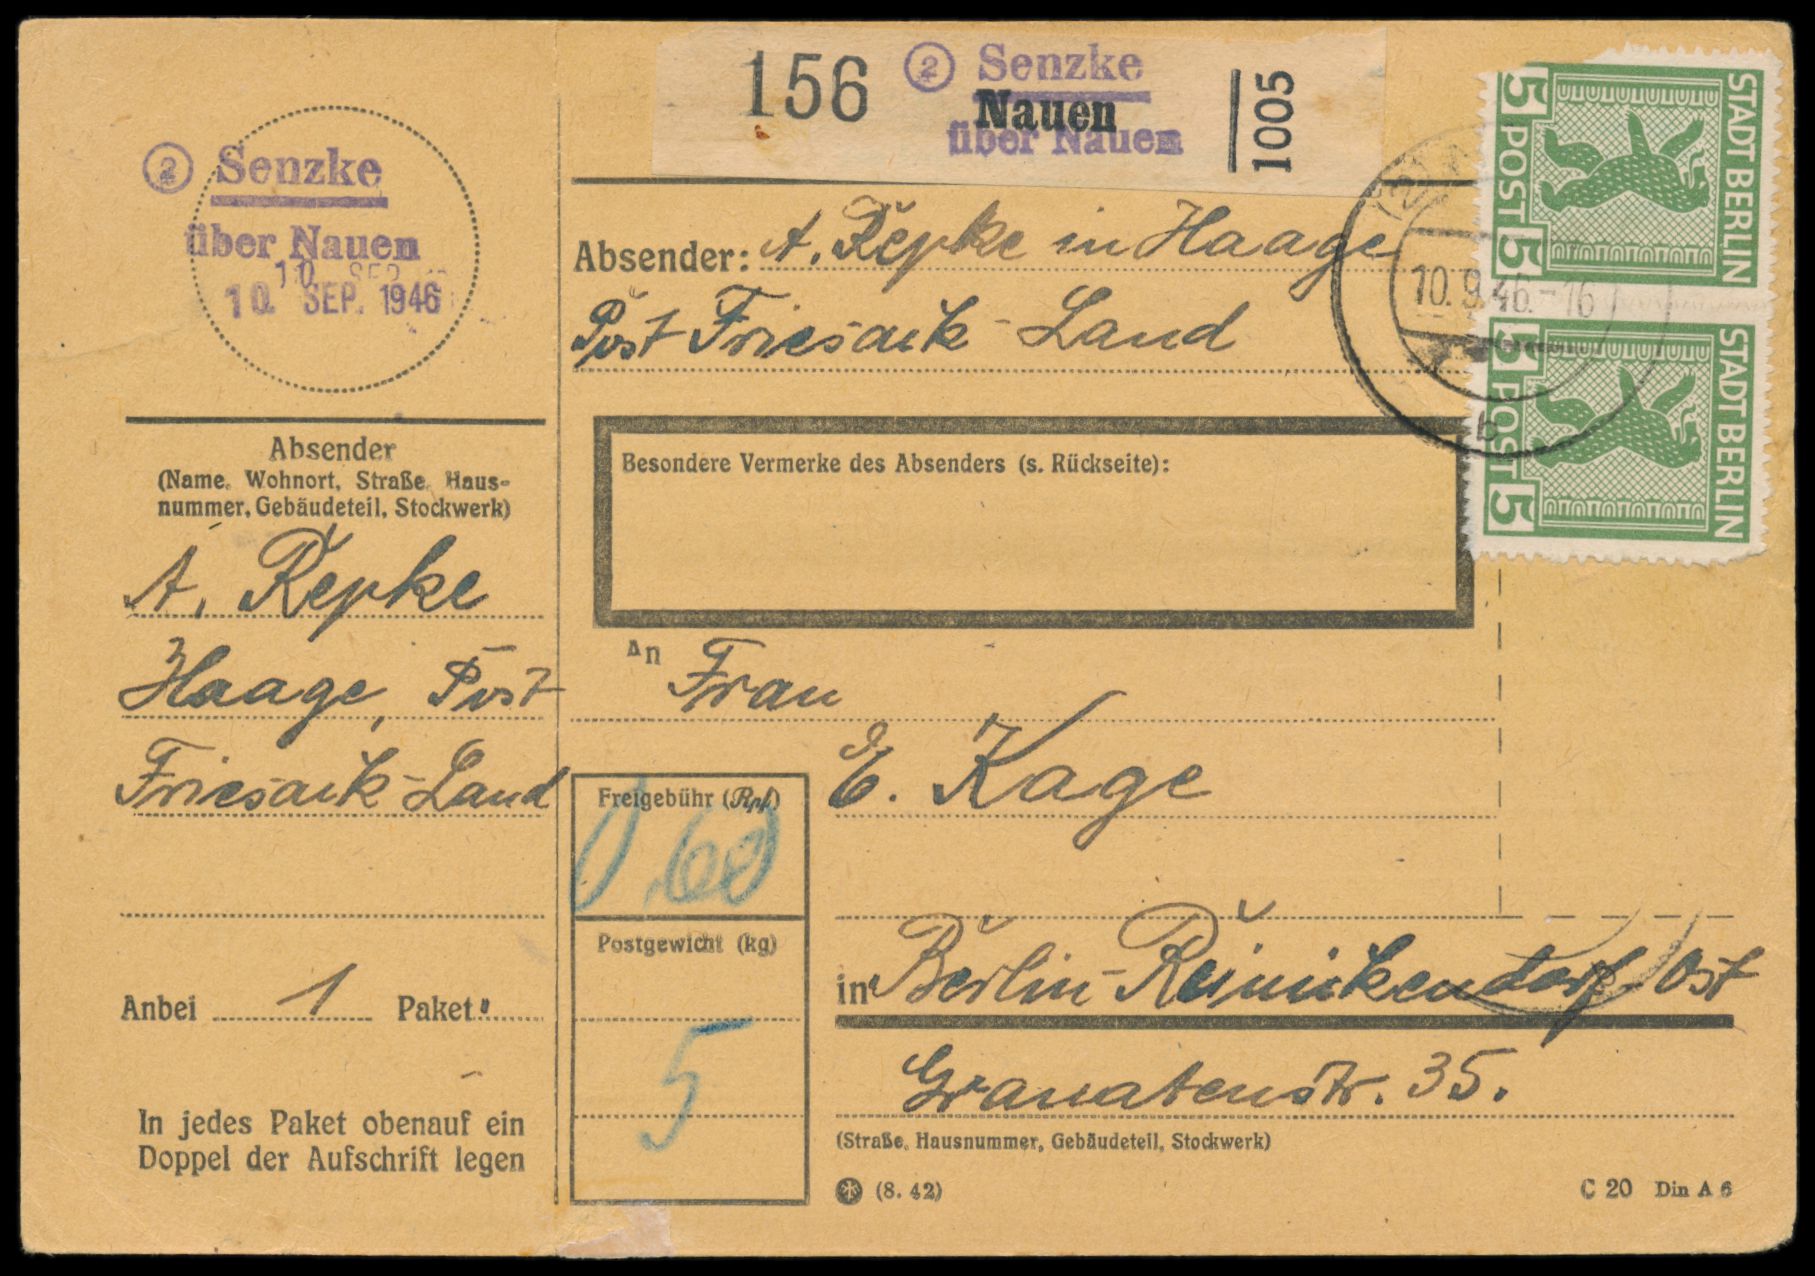 156
② Senzke
Nauen
über Nauen
1005
② Senzke
über Nauen
10. SEP.
10. SEP. 1946
Absender: A. Repke in Haage
Post Friesack-Land
STADT BERLIN
5 POST 5
10.9.46.-16
b
STADT BERLIN
5 POST 5
Absender
(Name, Wohnort, Straße, Haus-
nummer, Gebäudeteil, Stockwerk)
A. Repke
Haage, Post
Friesack-Land
Besondere Vermerke des Absenders (s. Rückseite):
An Frau
E. Kage
Freigebühr (Rpf)
0,60
Postgewicht (kg)
5
in Berlin-Reinickendorf-Ost
Granatenstr. 35.
(Straße, Hausnummer, Gebäudeteil, Stockwerk)
Anbei 1 Paket
In jedes Paket obenauf ein
Doppel der Aufschrift legen
(8. 42)
C 20 Din A 6